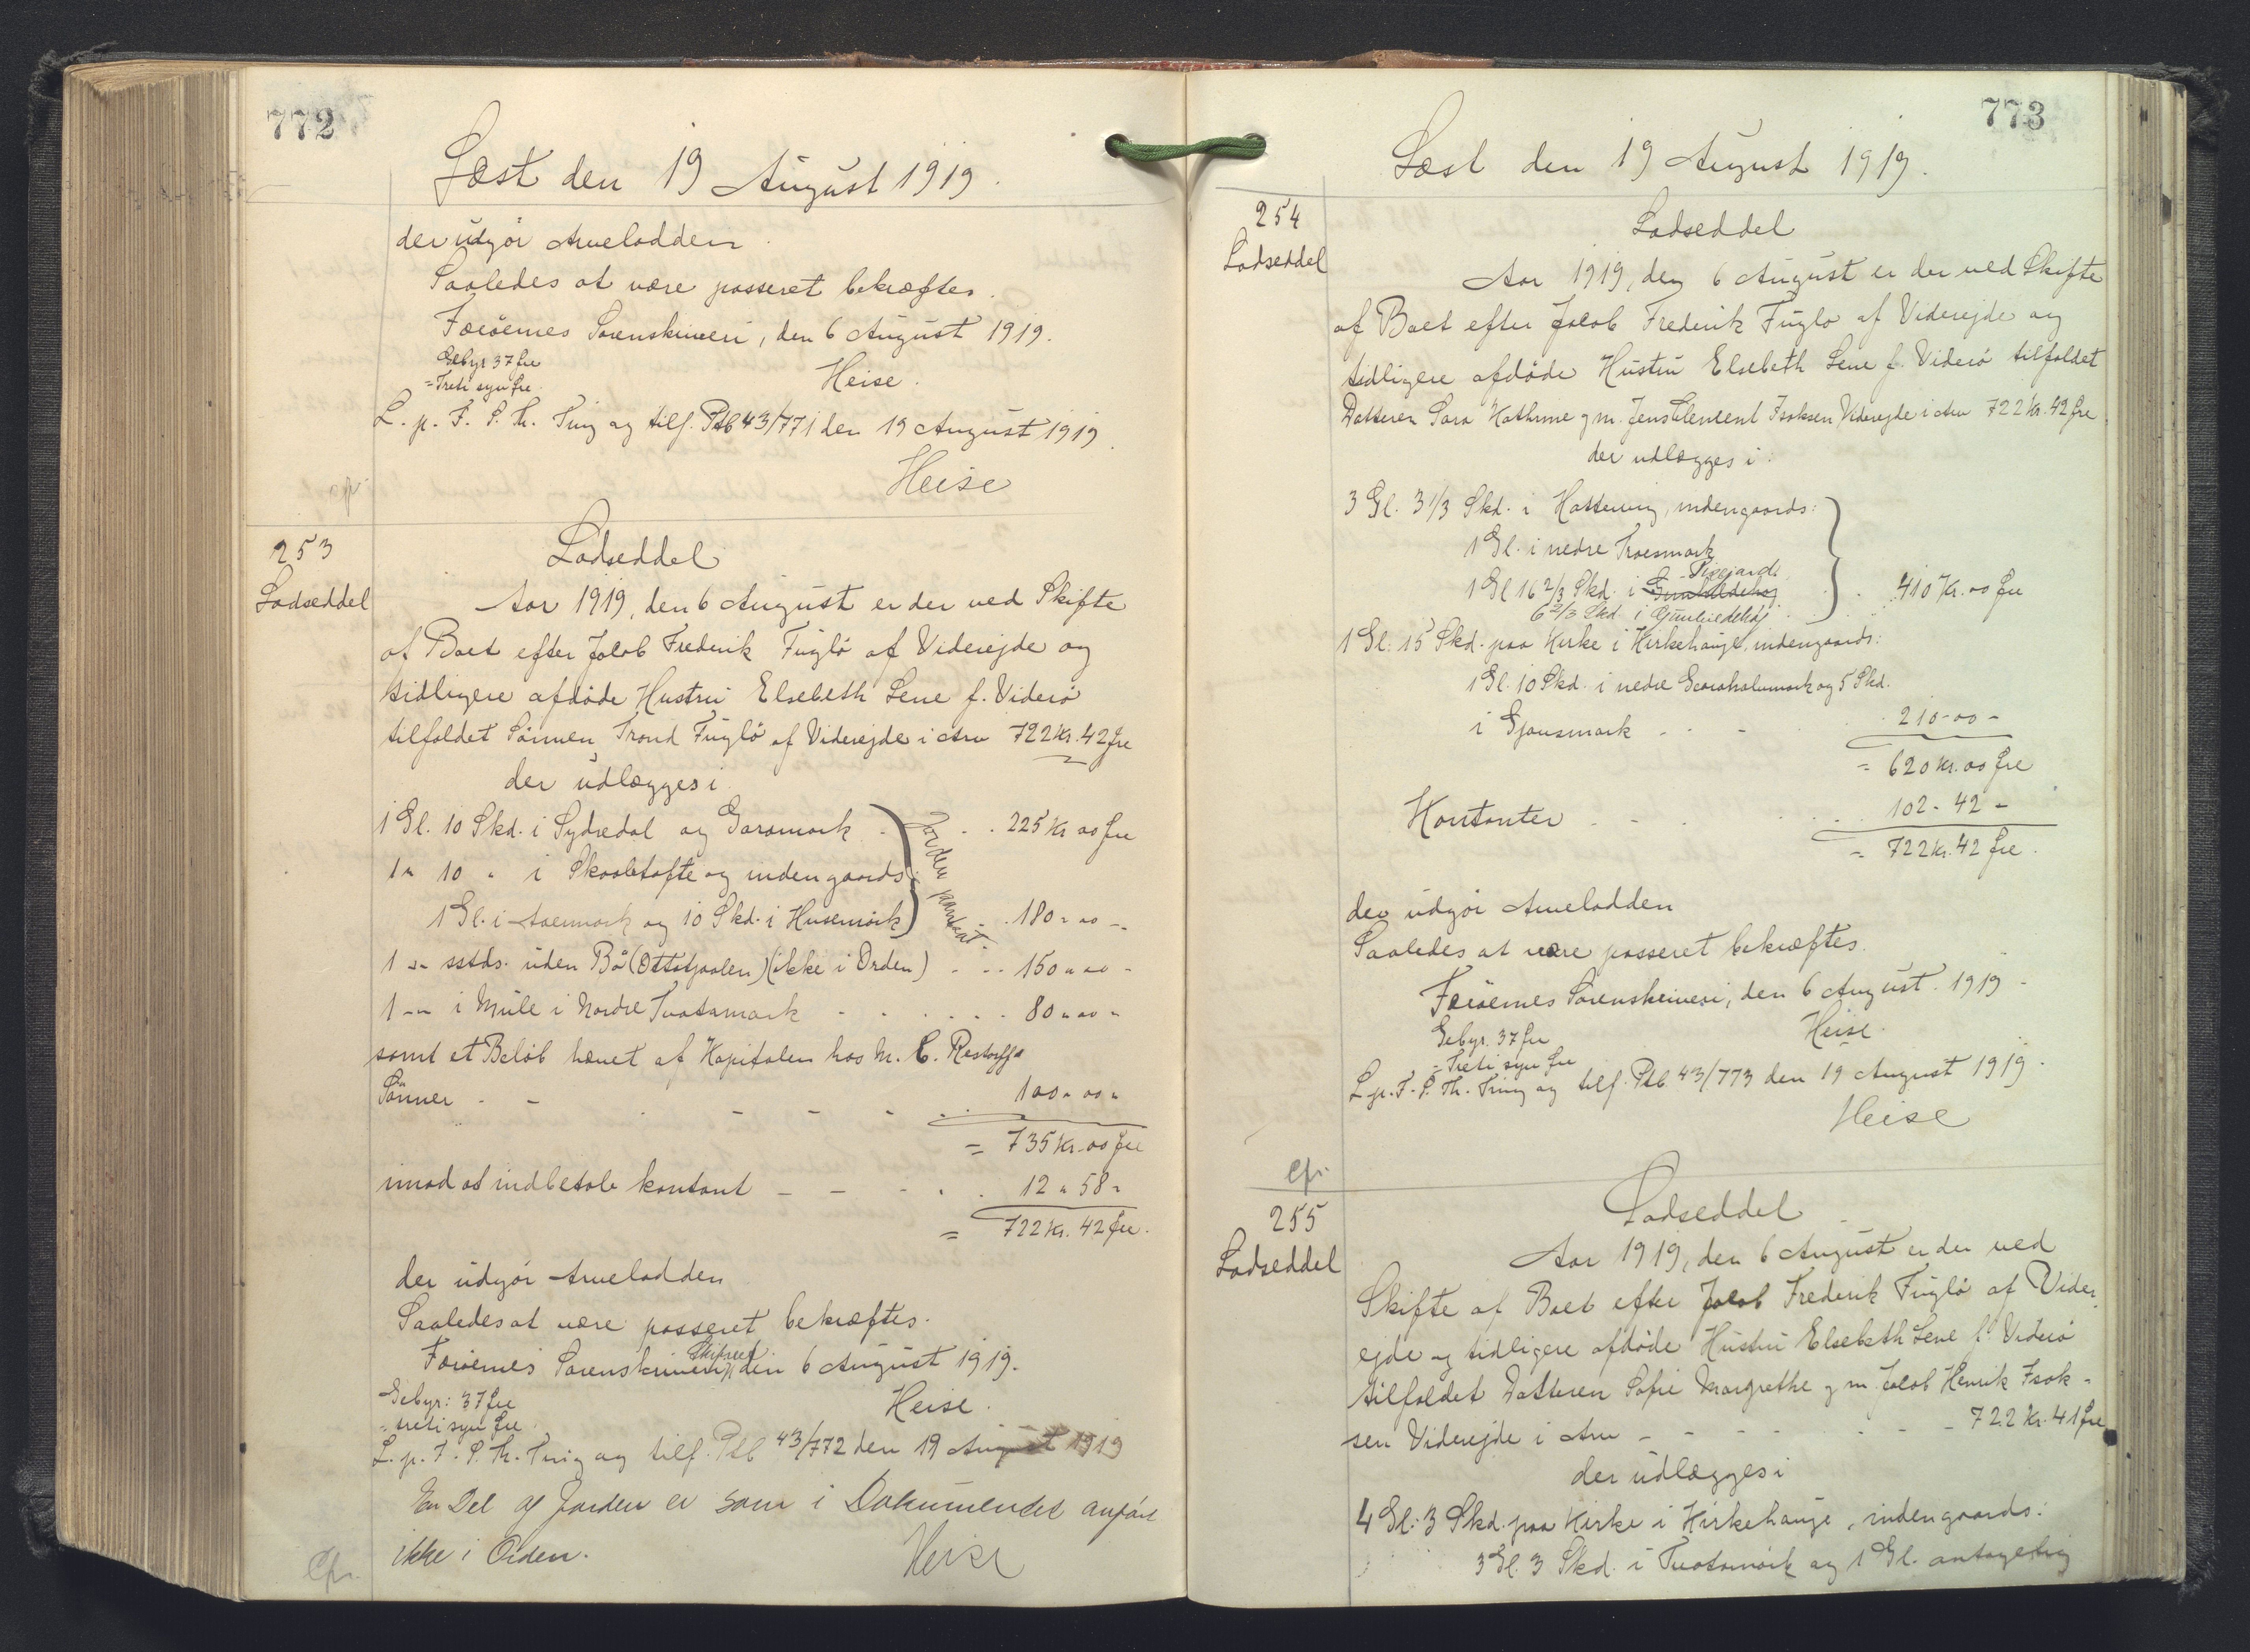 772
Læst den 19 August 1919.
der udgør Arvelodden.
Saaledes at være passeret bekræftes.
Færöernes Sorenskriveri, den 6 August 1919.
Gebyr 37 Øre
= Treti syv Øre.
Heise.
L. p. F. S. Th. Ting og tilf. Ptb 43/771 den 19 August 1919.
Heise
cfr.
253
Lodseddel
Lodseddel
Aar 1919, den 6 August er der ved Skifte
af Boet efter Jacob Frederik Fuglö af Viderejde og
tidligere afdöde Hustru Elsebeth Lene f. Viderö
tilfaldet Sönnen Trond Fuglö af Viderejde i Arv 722 Kr. 42 Øre
der udlægges i
1 Gl. 10 Skd. i Sydredal og Garamork . . . 225 Kr 00 Øre
1 " 10 " i Skaaletofte og indengaards:
1 Gl. i og 10 Skd. i Husemörk . . 180 " 00 "
Jorden pantsat.
1 " sstds. uden Bö (Ottotjaalen) (ikke i Orden) - . . 150 " 00 "
1 " " i Mule i Nordre Tvatsmark . . . . . 80 " 00 "
samt et Belöb hævet af Kapitalen hos M. C. Restorffs
Sönner - - - - - . . 100 " 00 "
= 735 Kr. 00 Øre
imod at indbetale kontant - - - . . 12 " 58 "
= 722 Kr. 42 Øre.
der udgör Arvelodden
Saaledes at være passeret bekræftes.
Skifteret
Færöernes Sorenskriveri, den 6 August 1919.
Gebyr: 37 Øre
= treti syv Øre
Heise.
L. p. F. S. Th. Ting og tilf. Ptb 43/772 den 19 August 1919
En Del af Jorden er som i Dokumentet anfört
ikke i Orden.
Heise
Cfr.
773
Læst den 19 August 1919.
254
Lodseddel
Lodseddel
Aar 1919, den 6 August er der ved Skifte
af Boet efter Jacob Frederik Fuglö af Viderejde og
tidligere afdöde Hustru Elsebeth Lene f. Viderö tilfaldet
Datteren Sara Kathrine g. m. Jens Clement Isaksen Viderejde i Arv 722 Kr. 42 Øre.
der udlægges i:
3 Gl. 3 1/3 Skd. i Hattervig, indengaards:
1 Gl. i nedre Traesmork
1 Gl 16 2/3 Skd. i
6 2/3 Skd. i Gunhildehöj
410 Kr. 00 Øre
1 Gl. 15 Skd. paa Kirke i Kirkehauge, indengaards:
1 Gl. 10 Skd. i nedre og 5 Skd.
i Gjousmork - . - . 210 - 00 -
= 620 Kr. 00 Øre
Kontanter - . - . . . 102 - 42 -
= 722 Kr. 42 Øre.
der udgör Arvelodden
Saaledes at være passeret bekræftes.
Færöernes Sorenskriveri, den 6 August. 1919 -
Gebyr. 37 Øre
= Treti syv Øre
Heise.
L. p. F. S. Th. Ting og tilf. Ptb. 43/773 den 19 August 1919.
Heise
Cfr.
255
Lodseddel
Lodseddel
Aar 1919, den 6 August er der ved
Skifte af Boet efter Jacob Frederik Fuglö af Vider,
ejde og tidligere afdöde Hustru Elsebeth Lene f. Viderö
tilfaldet Datteren Sofie Margrethe g. m. Jacob Henrik Isak-
sen Viderejde i Arv - - - - - - - 722 Kr. 41 Øre
der udlægges i
4 Gl: 3 Skd. paa Kirke i Kirkehauge, indengaards:
3 Gl. 3 Skd. i Tvatsmörk og 1 Gl. antagelig